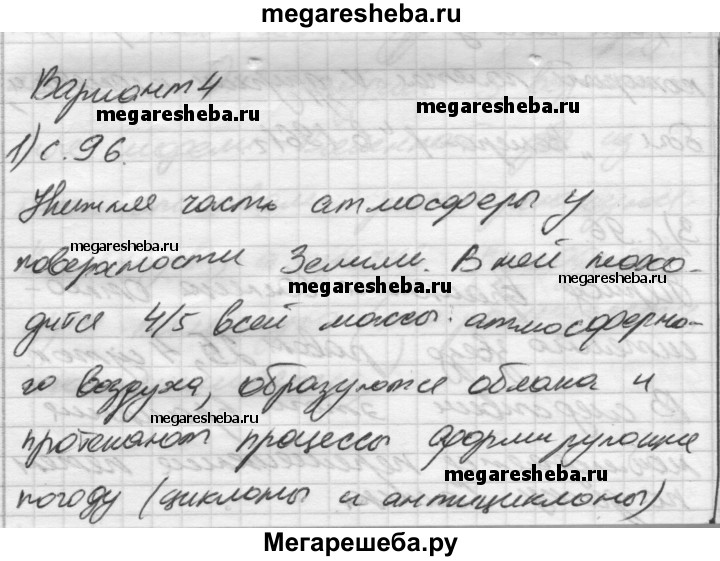 megaresheba.ru
Вариант 4
megaresheba.ru
megaresheba.ru
1) с. 96.
Нижняя часть атмосферы у
megaresheba.ru
поверхности Земли. В ней нахо-
megaresheba.ru
megaresheba.ru
дится 4/5 всей массы атмосферно-
го воздуха, образуются облака и
megaresheba.ru
протекают процессы формирующие
megaresheba.ru
погоду (циклоны и антициклоны)
Мегарешеба.ру